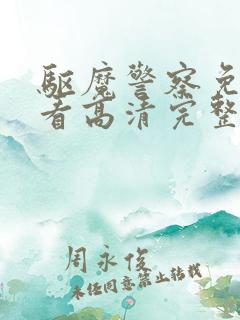 驱魔警察免
看高清完整
周永俊
未经同意禁止转载